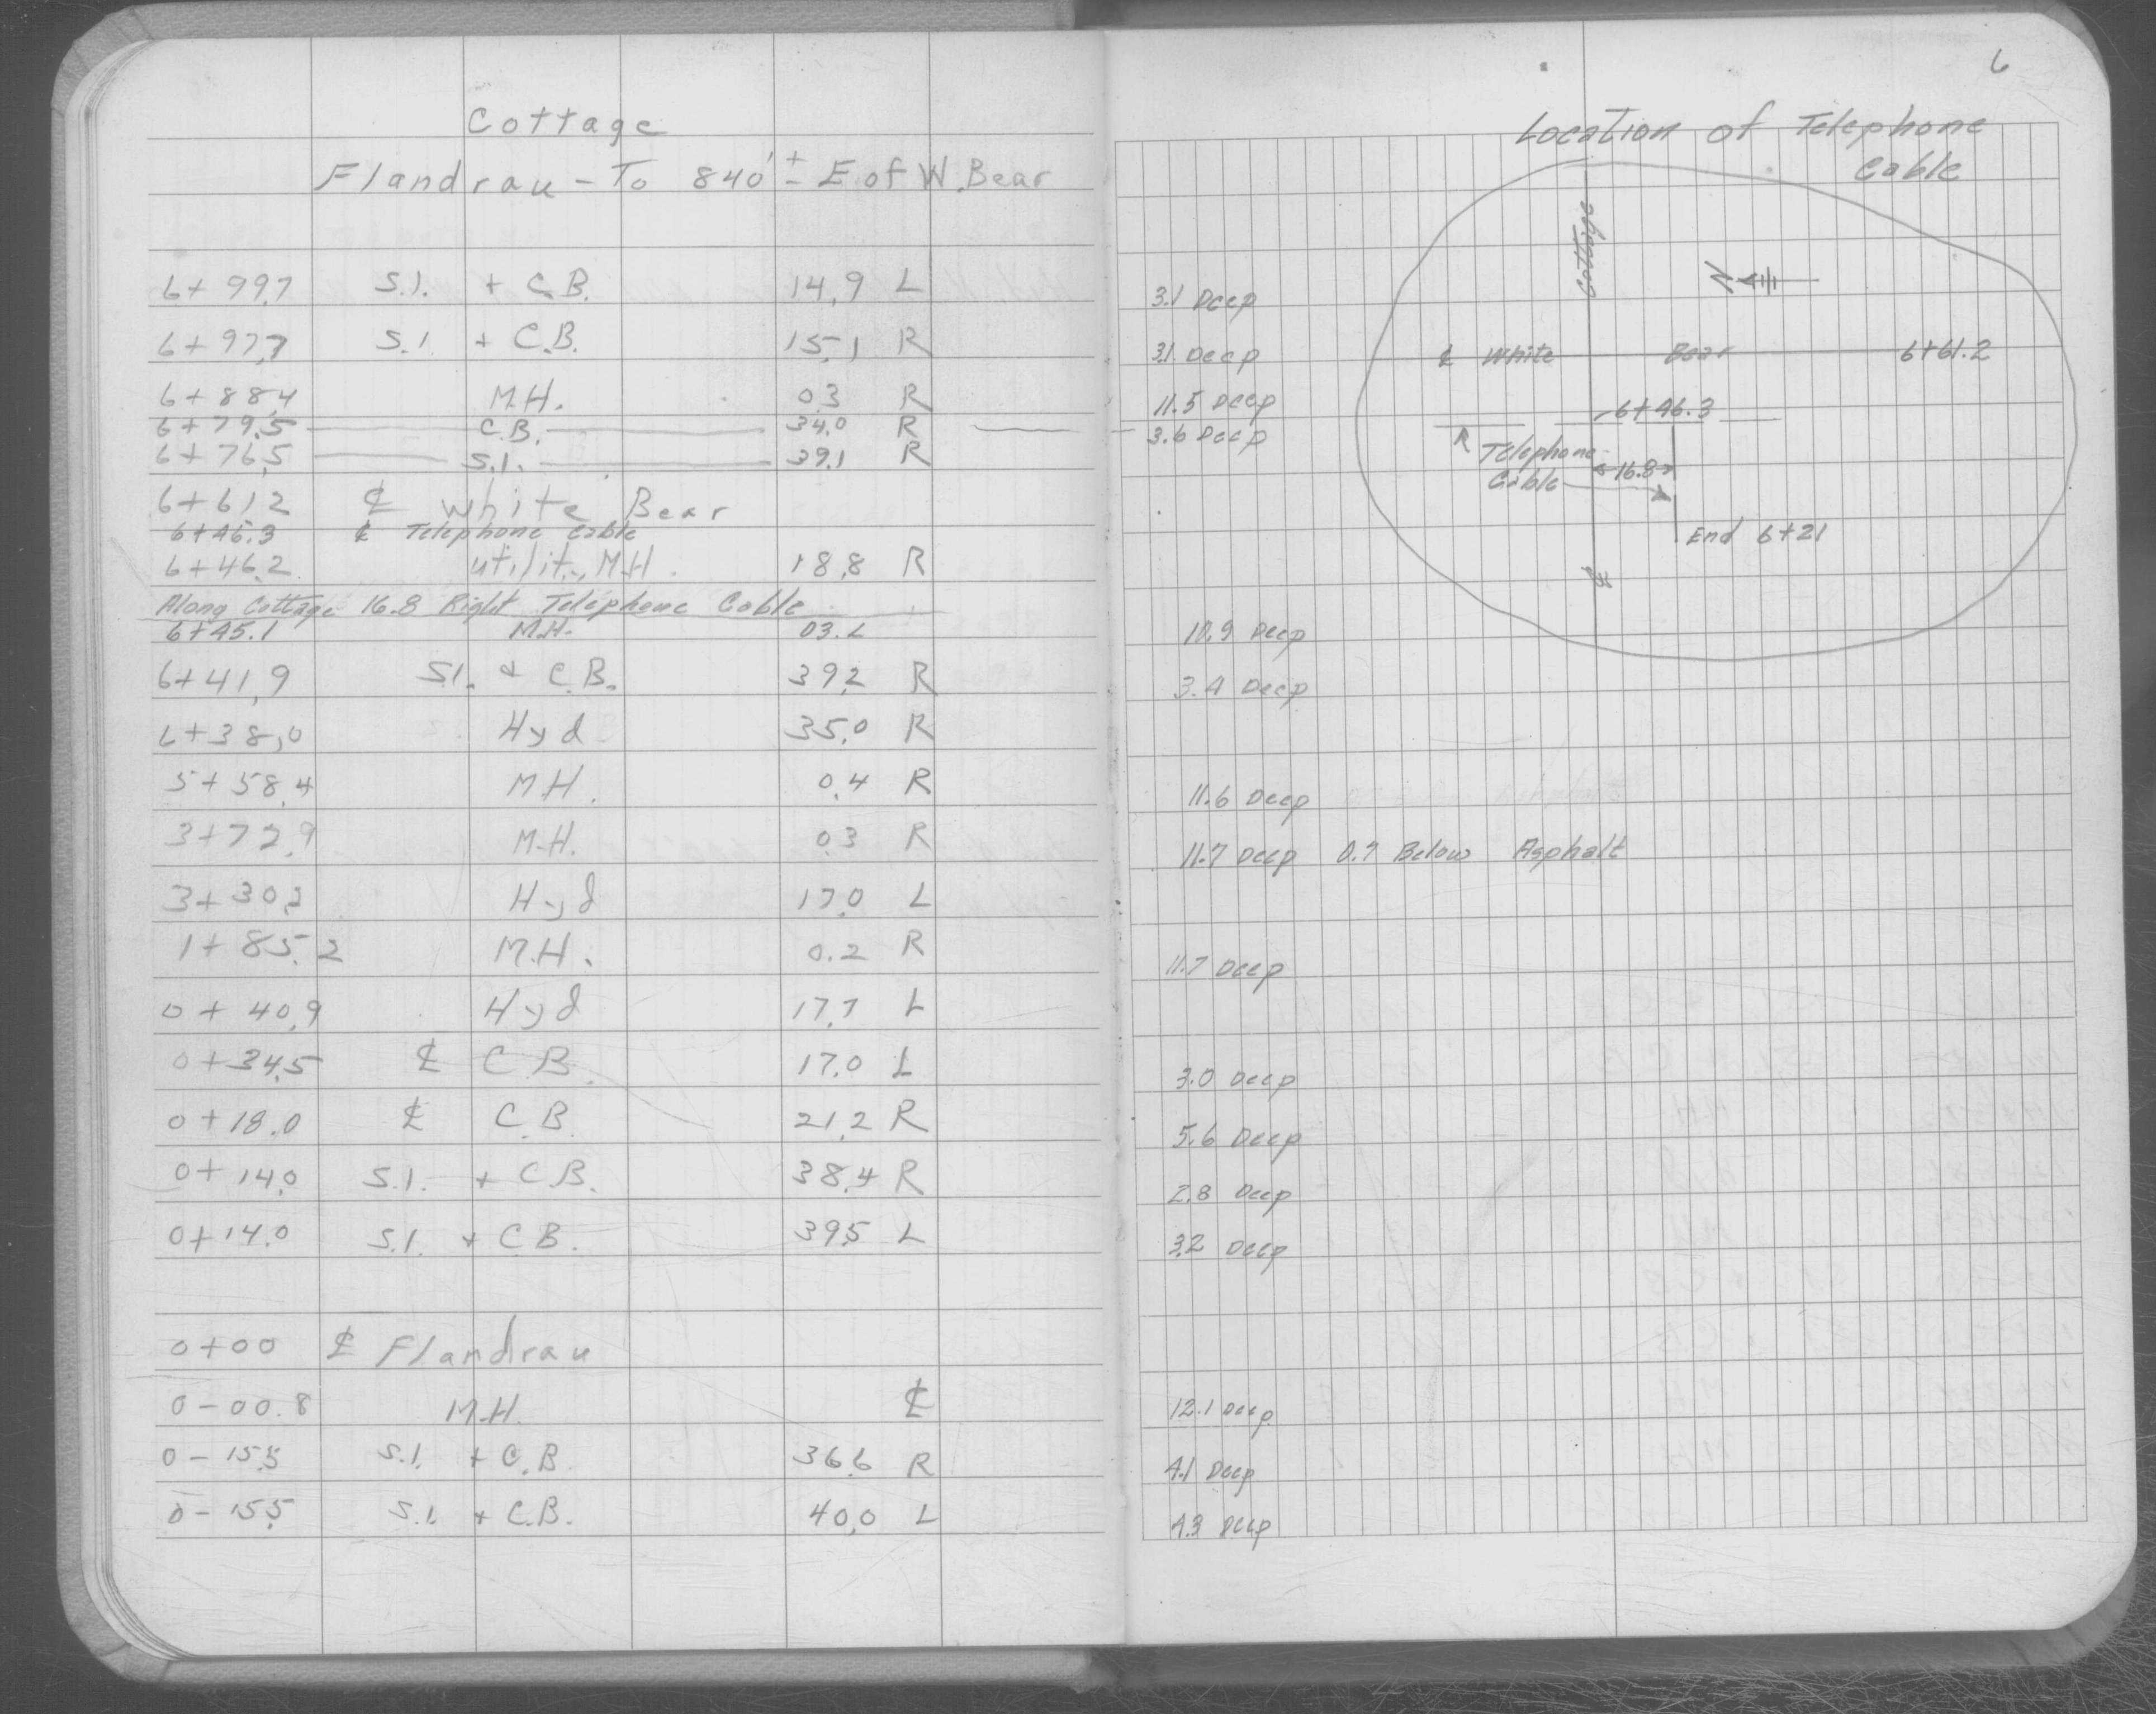 Cottage
Flandrau - To 840'± E of W. Bear
6+99.7 S.I. + C.B. 14.9 L
6+97.7 S.I. + C.B. 15.1 R
6+88.4 M.H. 0.3 R
6+79.5 C.B. 34.0 R
6+76.5 S.I. 39.1 R
6+61.2 ℄ White Bear
6+46.3 ℄ Telephone Cable
6+46.2 utility M.H. 18.8 R
Along Cottage 16.8 Right Telephone Cable
6+45.1 M.H. 03. L
6+41.9 S.I. + C.B. 39.2 R
6+38.0 Hyd 35.0 R
5+58.4 M.H. 0.4 R
3+72.9 M.H. 0.3 R
3+30.2 Hyd 17.0 L
1+85.2 M.H. 0.2 R
0+40.9 Hyd 17.7 L
0+34.5 ℄ C.B. 17.0 L
0+18.0 ℄ C.B. 21.2 R
0+14.0 S.I. + C.B. 38.4 R
0+14.0 S.I. + C.B. 39.5 L
0+00 ℄ Flandrau
0-00.8 M.H. ℄
0-15.5 S.I. + C.B. 36.6 R
0-15.5 S.I. + C.B. 40.0 L
6
Location of Telephone
Cable
Cottage
N
3.1 Deep
3.1 Deep
℄ White Bear 6+61.2
11.5 Deep
6+46.3
3.6 Deep
Telephone
Cable
16.8
End 6+21
℄
10.9 Deep
3.4 Deep
11.6 Deep
11.7 Deep 0.7 Below Asphalt
11.7 Deep
3.0 Deep
5.6 Deep
2.8 Deep
3.2 Deep
12.1 Deep
4.1 Deep
4.3 Deep